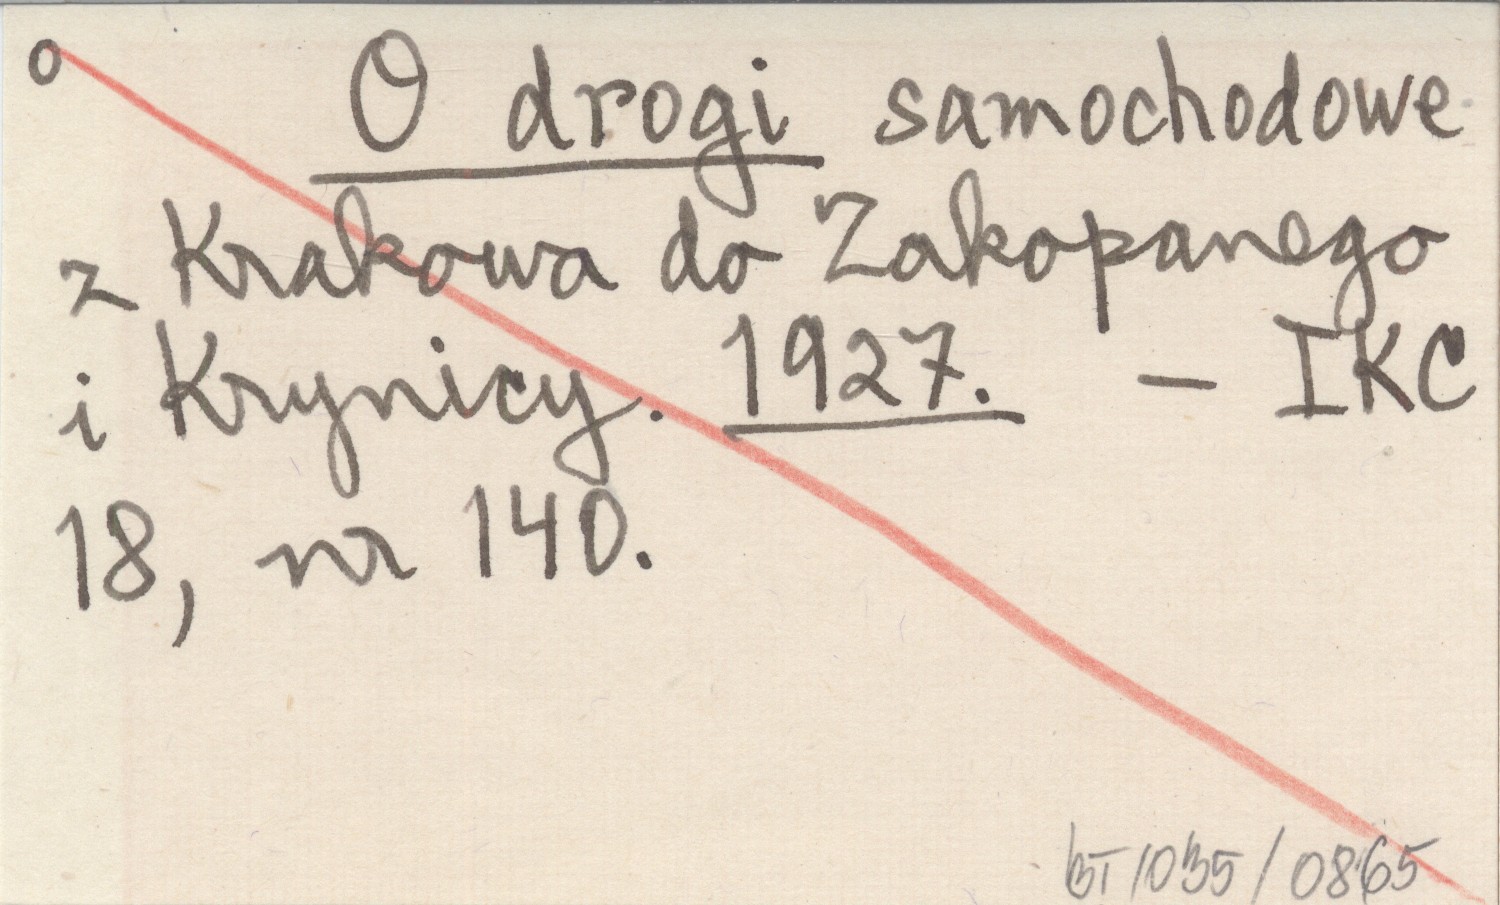 o
O drogi samochodowe
z Krakowa do Zakopanego
i Krynicy. 1927. – IKC
18, nr 140.
BT/035/0865